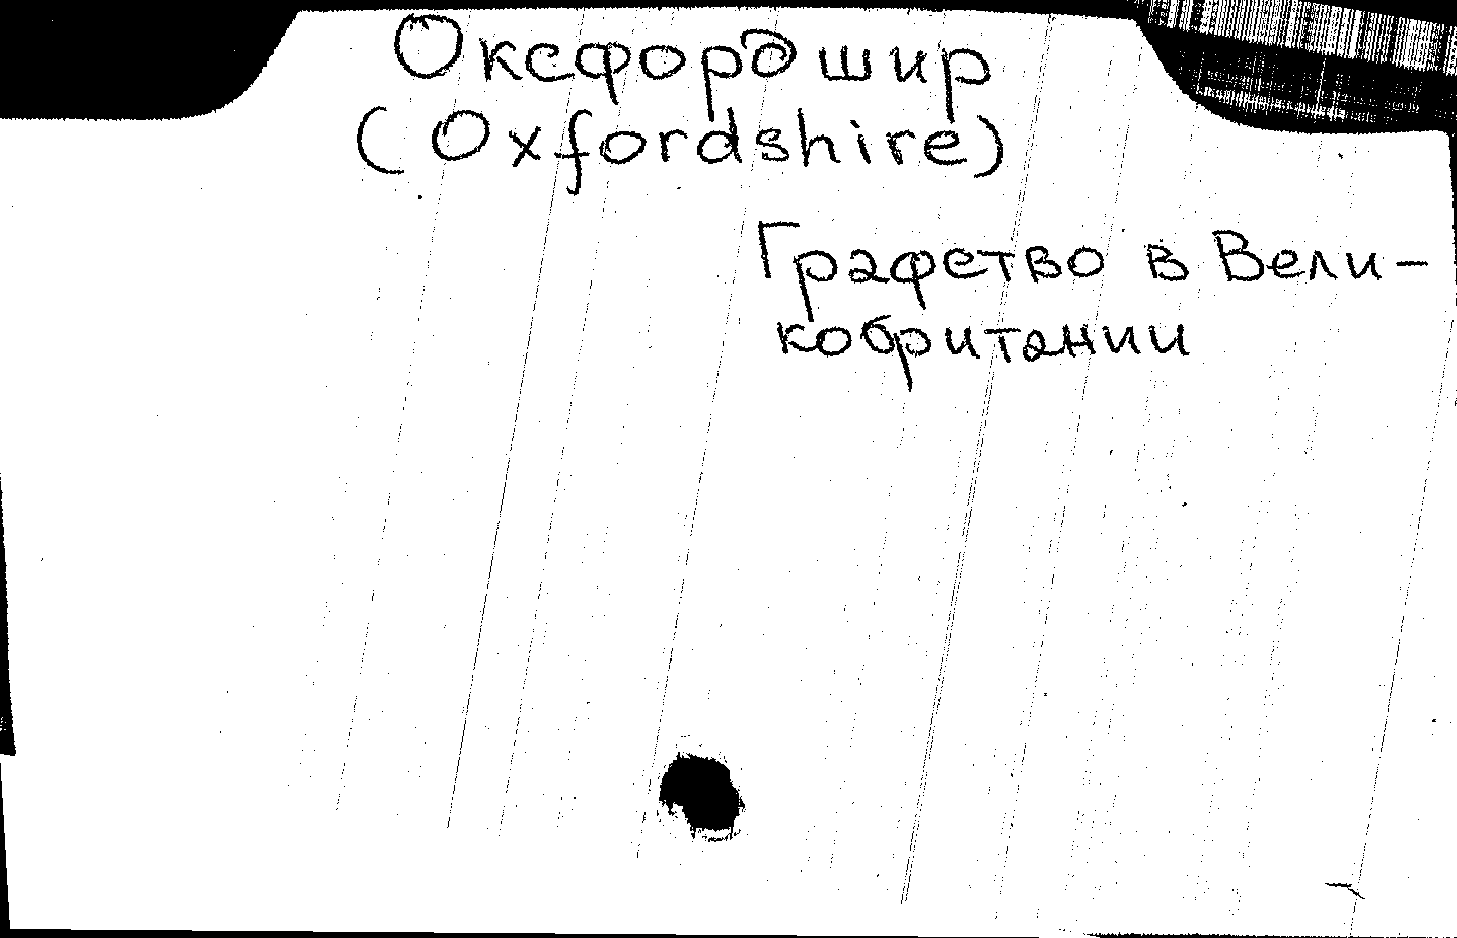 Оксфордшир
(Oxfordshire)
Графство в Вели-
кобритании